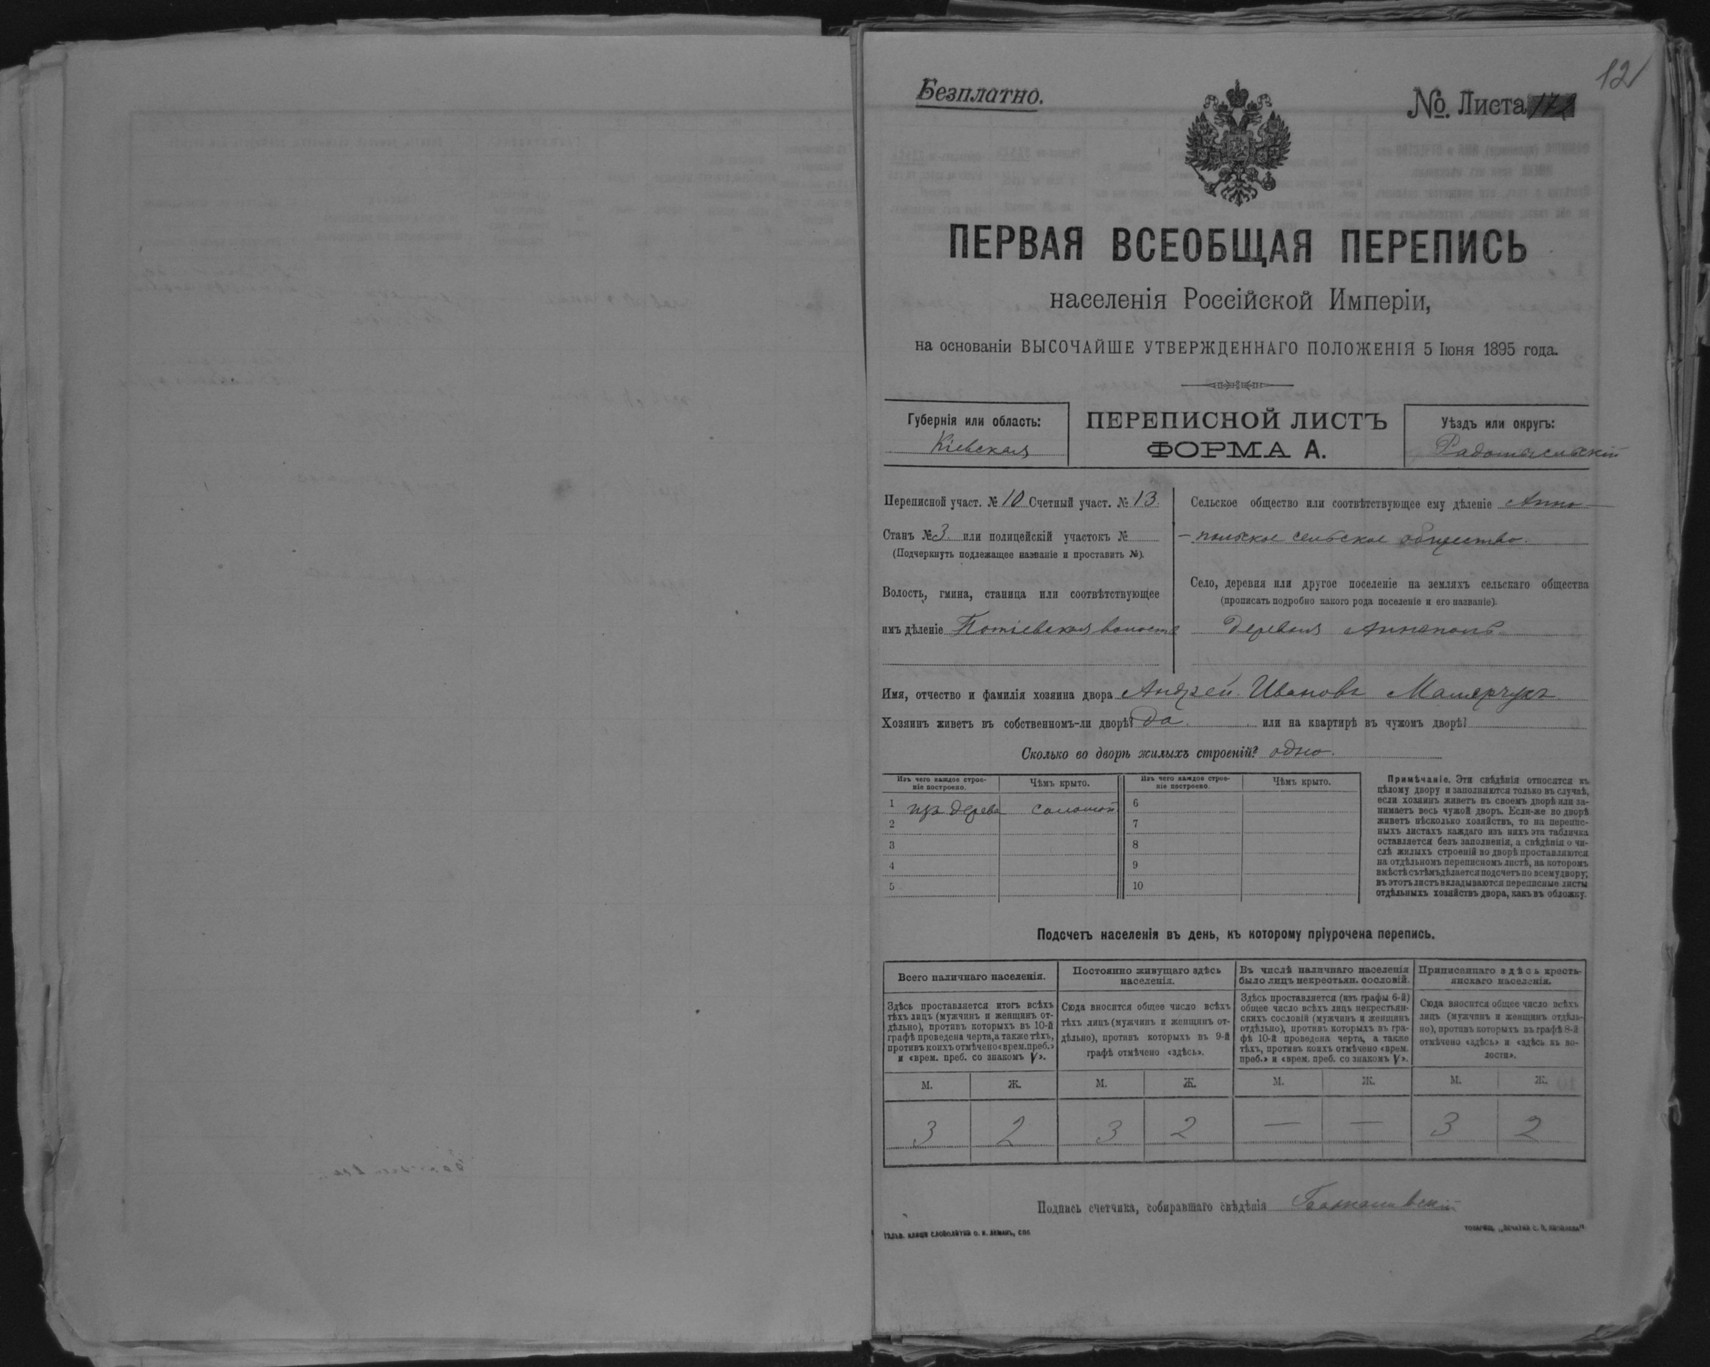 12
Безплатно.
№ Листа 172
ПЕРВАЯ ВСЕОБЩАЯ ПЕРЕПИСЬ
населенія Россійской Имперіи,
на основаніи ВЫСОЧАЙШЕ УТВЕРЖДЕННАГО ПОЛОЖЕНІЯ 5 Іюня 1895 года.
Губернія или область:
Кіевская
ПЕРЕПИСНОЙ ЛИСТЪ
ФОРМА А.
Уѣздъ или округъ:
Радомысльскій
Переписной участ. № 10 Счетный участ. № 13.
Станъ № 3 или полицейскій участокъ №
(Подчеркнуть подлежащее названіе и проставить №).
Волость, гмина, станица или соотвѣтствующее
имъ дѣленіе Потіевская волость
Сельское общество или соотвѣтствующее ему дѣленіе Анно-
-польское сельское общество.
Село, деревня или другое поселеніе на земляхъ сельскаго общества
(прописать подробно какого рода поселеніе и его названіе).
деревня Аннополь
Имя, отчество и фамилія хозяина двора Андрей Ивановъ
Хозяинъ живетъ въ собственномъ-ли дворѣ? да. или на квартирѣ въ чужомъ дворѣ?
Сколько во дворѣ жилыхъ строеній? одно.
Изъ чего каждое строе-
ніе построено.
Чѣмъ крыто.
Изъ чего каждое строе-
ніе построено.
Чѣмъ крыто.
1 изъ дерева соломой
2
3
4
5
6
7
8
9
10
Примѣчаніе. Эти свѣдѣнія относятся къ
цѣлому двору и заполняются только въ случаѣ,
если хозяинъ живетъ въ своемъ дворѣ или за-
нимаетъ весь чужой дворъ. Если-же во дворѣ
живетъ нѣсколько хозяйствъ, то на перепис-
ныхъ листахъ каждаго изъ нихъ эта табличка
оставляется безъ заполненія, а свѣдѣнія о чи-
слѣ жилыхъ строеній во дворѣ проставляются
на отдѣльномъ переписномъ листѣ, на которомъ
вмѣстѣ съ тѣмъ дѣлается подсчетъ по всему двору;
въ этотъ листъ вкладываются переписные листы
отдѣльныхъ хозяйствъ двора, какъ въ обложку.
Подсчетъ населенія въ день, къ которому пріурочена перепись.
Всего наличнаго населенія.
Здѣсь проставляется итогъ всѣхъ
тѣхъ лицъ (мужчинъ и женщинъ от-
дѣльно), противъ которыхъ въ 10-й
графѣ проведена черта, а также тѣхъ,
противъ коихъ отмѣчено «врем. преб.»
и «врем. преб. со знакомъ V».
Постоянно живущаго здѣсь
населенія.
Сюда вносится общее число всѣхъ
тѣхъ лицъ (мужчинъ и женщинъ от-
дѣльно), противъ которыхъ въ 9-й
графѣ отмѣчено «здѣсь».
Въ числѣ наличнаго населенія
было лицъ некрестьян. сословій.
Здѣсь проставляется (изъ графы 6-й)
общее число всѣхъ лицъ некрестьян-
скихъ сословій (мужчинъ и женщинъ
отдѣльно), противъ которыхъ въ гра-
фѣ 10-й проведена черта, а также
тѣхъ, противъ коихъ отмѣчено «врем.
преб.» и «врем. преб. со знакомъ V».
Приписаннаго здѣсь кресть-
янскаго населенія.
Сюда вносится общее число всѣхъ
лицъ (мужчинъ и женщинъ отдѣль-
но), противъ которыхъ въ графѣ 8-й
отмѣчено «здѣсь» и «здѣсь въ во-
лости».
М. Ж. М. Ж. М. Ж. М. Ж.
3 2 3 2 — — 3 2
Подпись счетчика, собиравшаго свѣдѣнія